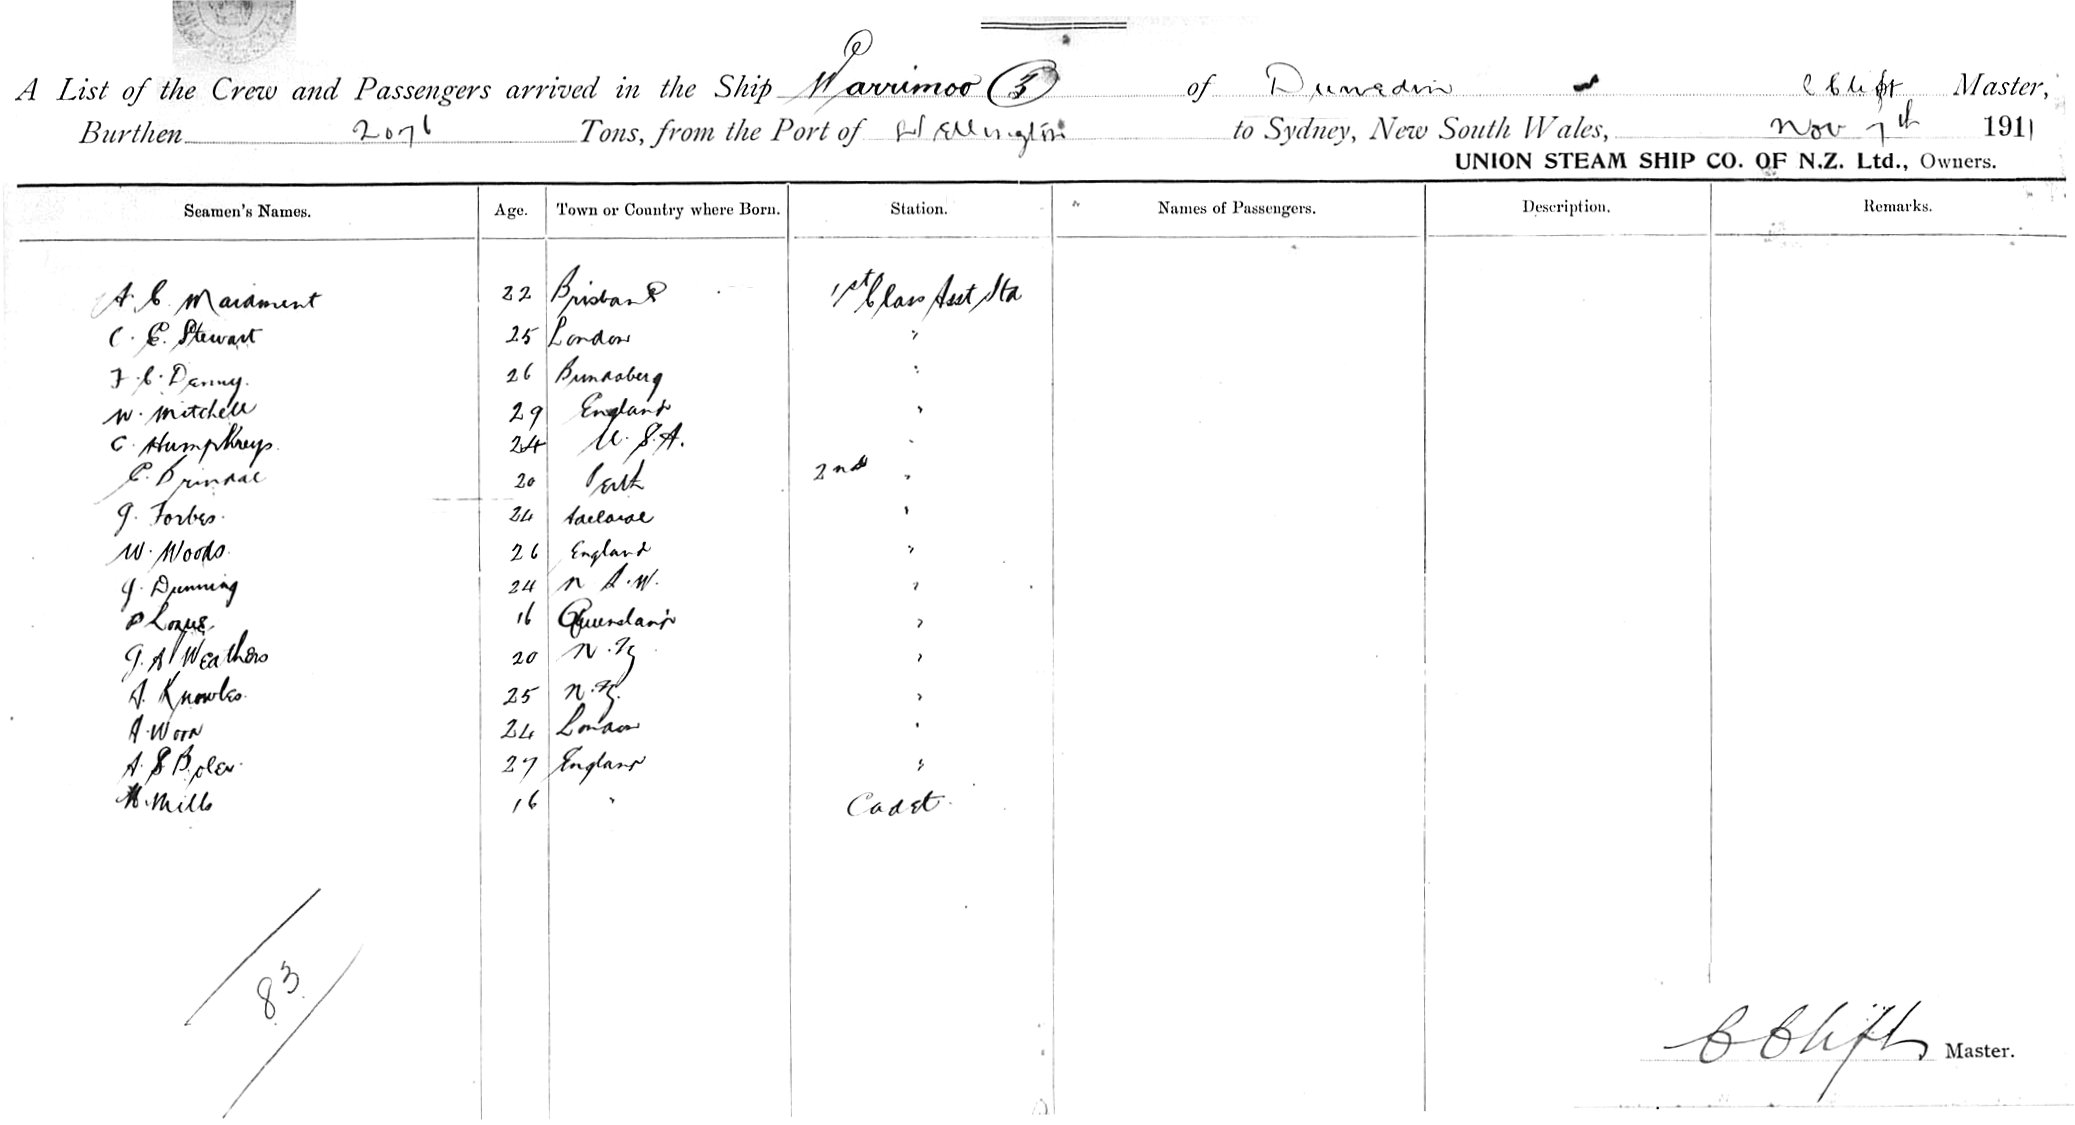 A List of the Crew and Passengers arrived in the Ship Warrimoo (3) of Dunedin C Clift Master,
Burthen 2076 Tons, from the Port of Wellington to Sydney, New South Wales, Nov 7th 1911
UNION STEAM SHIP CO. OF N.Z. Ltd., Owners.
Seamen's Names. Age. Town or Country where Born. Station. Names of Passengers. Description. Remarks.
A. C. Maidment 22 Brisbane 1st Class Asst Std
C. E. Stewart 25 London "
F. C. Denny. 26 Bundaberg "
W. Mitchell 29 England "
C. Humphreys. 24 U.S.A. "
E. Brindal 20 Perth 2nd "
G. Forbes. 24 Adelaide "
W. Woods. 26 England "
J. Dunning 24 N.S.W. "
P 16 Queensland "
G. A Weathers 20 N.Z "
A. Knowles. 25 N.Z. "
A. Wood 24 London "
A. S 27 England "
Mills 16 " Cadet.
83
C Clift Master.